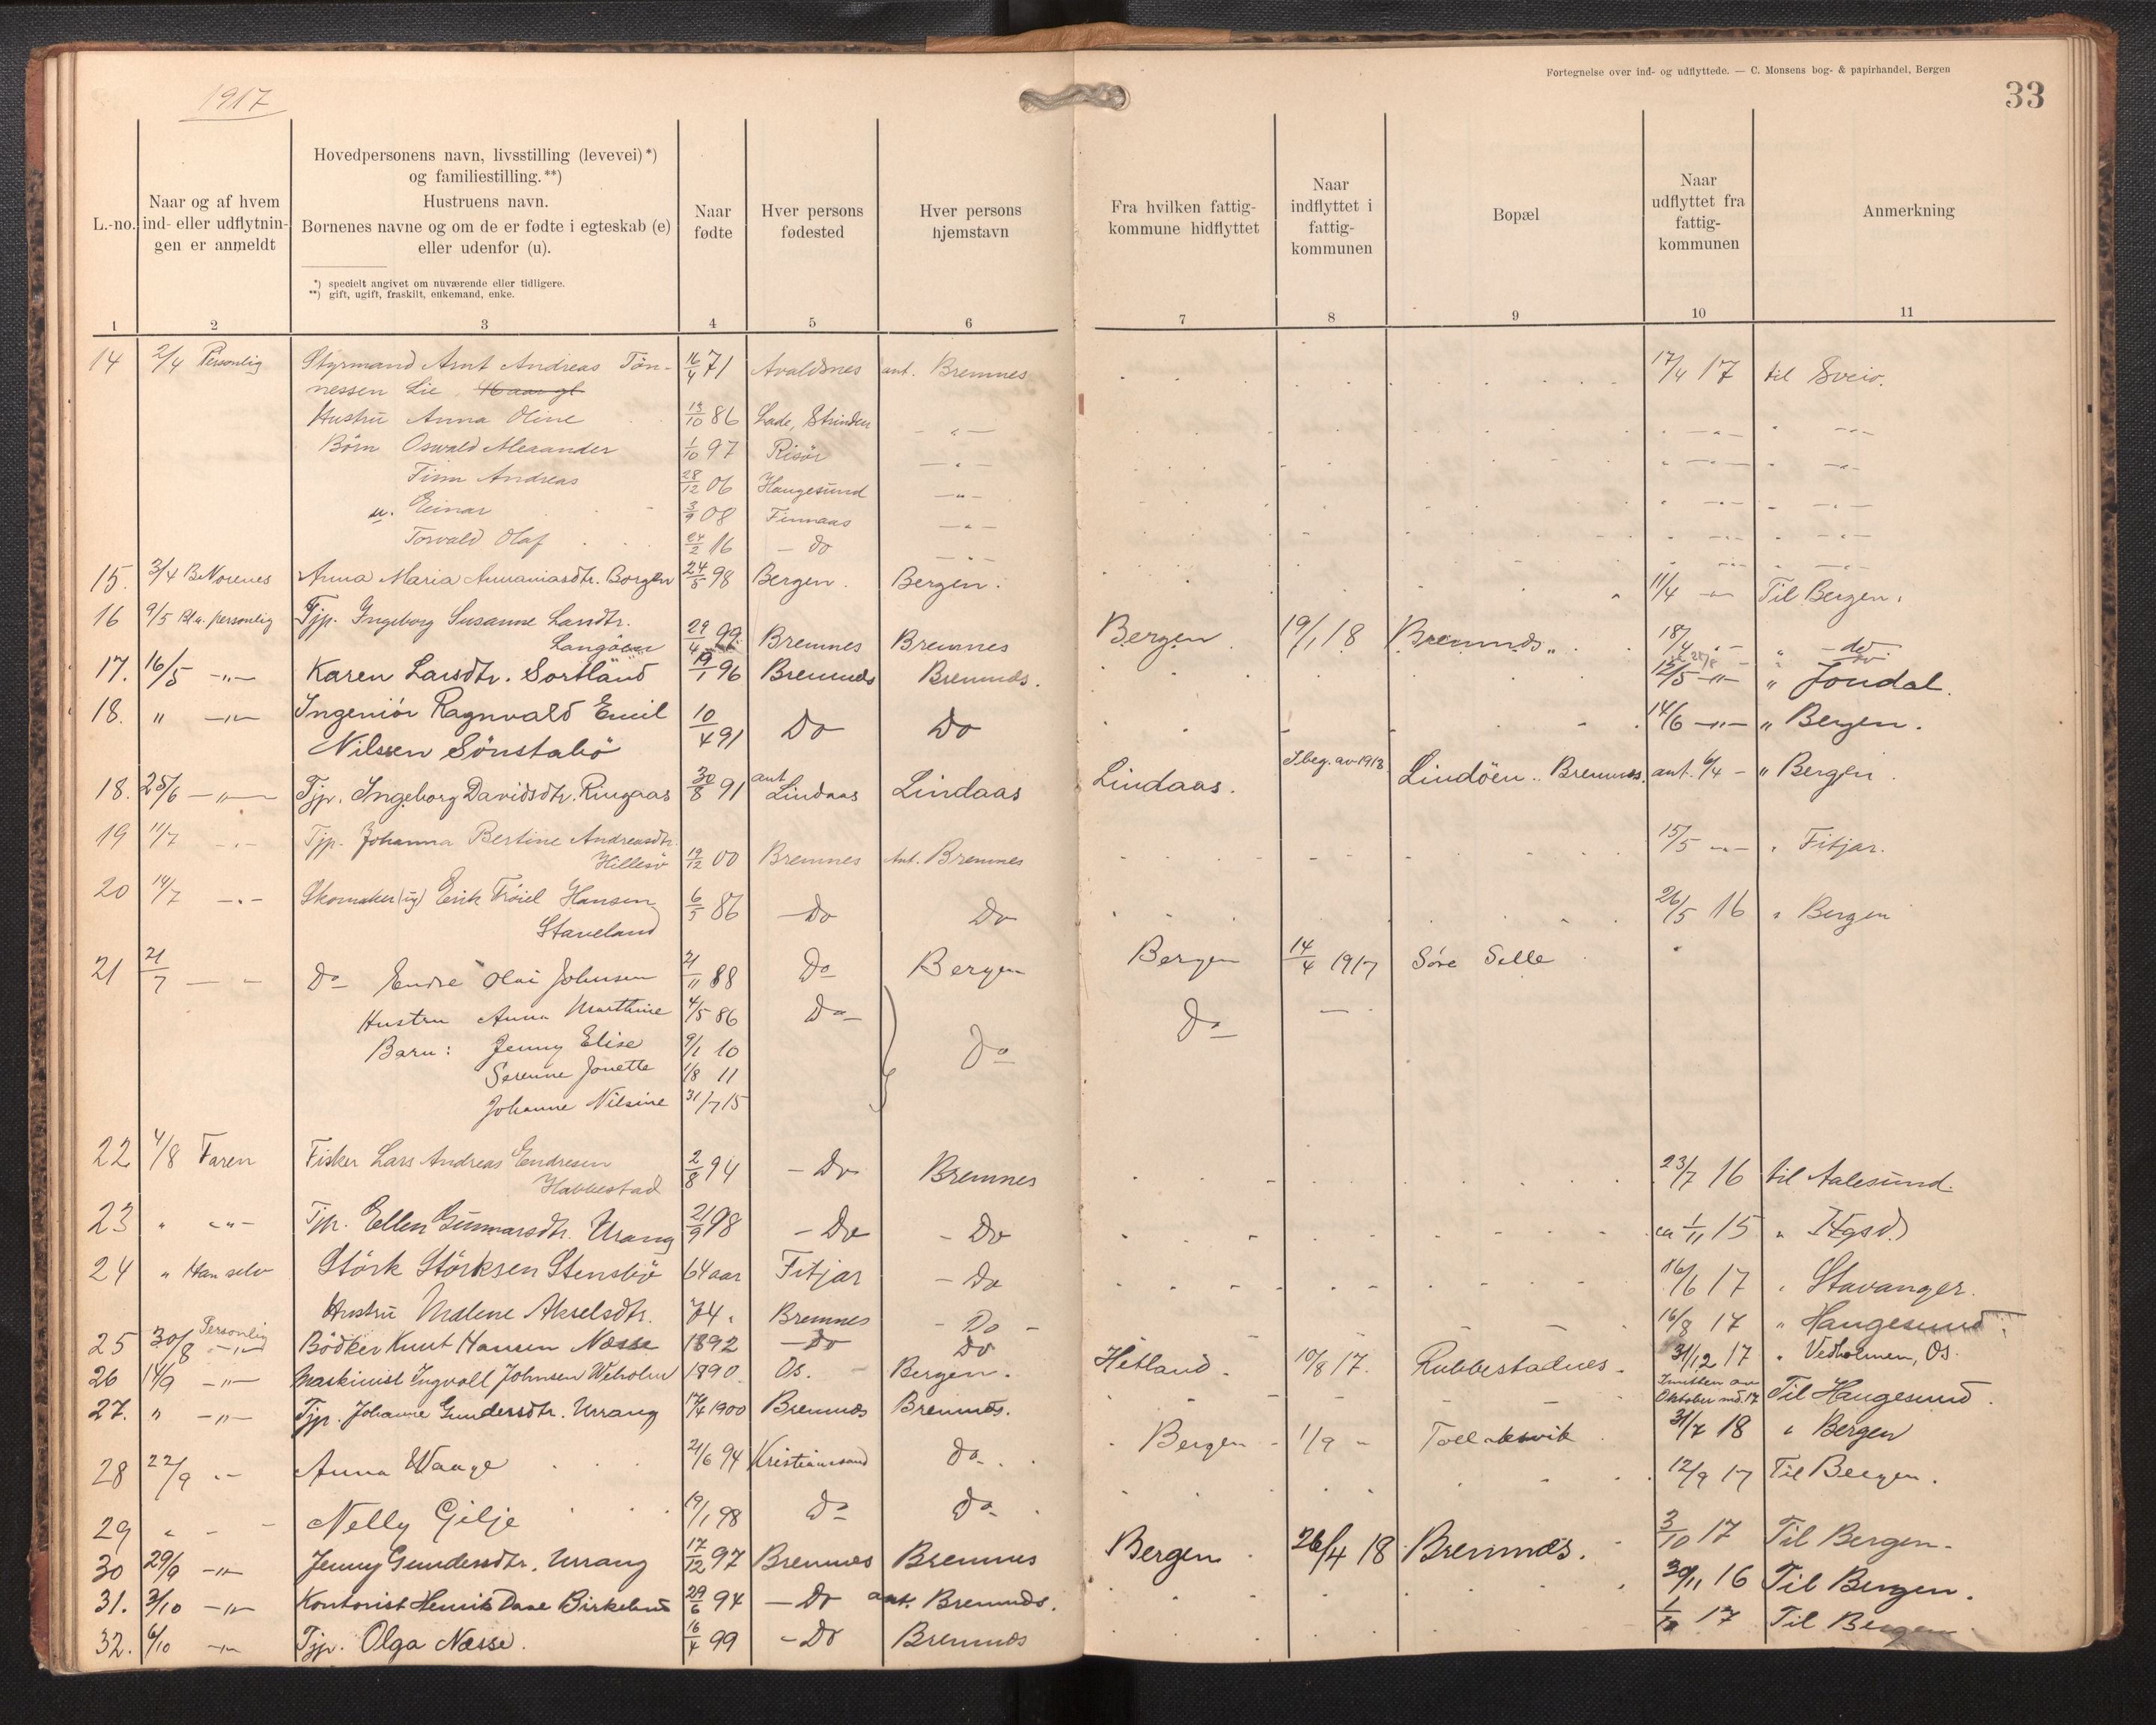 1917
Fortegnelse over ind- og udflyttede. — C. Monsens bog- & papirhandel, Bergen
33
L.-no.
Naar og af hvem
ind- eller udflytnin-
gen er anmeldt
Hovedpersonens navn, livsstilling (levevei)*)
og familiestilling.**)
Hustruens navn.
Børnenes navne og om de er fødte i egteskab (e)
eller udenfor (u).
*) specielt angivet om nuværende eller tidligere.
**) gift, ugift, fraskilt, enkemand, enke.
Naar
fødte
Hver persons
fødested
Hver persons
hjemstavn
Fra hvilken fattig-
kommune hidflyttet
Naar
indflyttet i
fattig-
kommunen
Bopæl
Naar
udflyttet fra
fattig-
kommunen
Anmerkning
1 2 3 4 5 6 7 8 9 10 11
14 2/4 Personlig Styrmand Arnt Andreas Tön- 16/4 71 Avaldsnes ant. Bremnes 17/4 17 til Sveio.
nessen Lie
Hustru Anna Oline 86 Lade, Strinden - " -
Börn Oswald Alexander 1/10 97 Risör - " -
Finn Andreas 28/12 06 Haugesund - " -
u. Einar 3/9 08 Finnaas - " -
Torvald Olaf 24/2 16 - Do - " -
15. 3/4 B. Norenes Anna Maria Annaniasdtr. Borgen 24/5 98 Bergen. Bergen. 11/4 - " - Til Bergen.
16 9/5 personlig Tjp. Ingeborg Susanne Larsdtr.
Langöen 29/4 99 Bremnes Bremnes Bergen 19/1 18 Bremnes 18/4 " - do
17. 16/5 - " - Karen Larsdtr. Sortland 19/1 96 Bremnes Bremnes. 12/5 - " - " Jondal.
18. " - " - Ingeniör Ragnvald Emil 10/4 91 Do Do 14/6 - " - " Bergen.
Nilssen Sönstabö
18. 25/6 - " - Tjp. Ingeborg Davidsdtr. Ringaas 30/8 91 ant Lindaas Lindaas Lindaas. I beg. av 1913 Lindöen Bremnes. ant. 6/4 - " Bergen.
19 11/7 - " - Tjp. Johanna Bertine Andreasdtr.
Hillesö 19/12 00 Bremnes Ant. Bremnes 15/5 - " - " Fitjar.
20 14/7 - " - Skomaker (ug) Erik Tröiel Hansen 6/5 86 Do Do 26/5 16 " Bergen
Staveland
21 21/7 - - Do Endre Olai Johnsen 21/11 88 Do Bergen Bergen 14/4 1917 Söre Selle
Hustru Anna Marthine 4/5 86 Do Do -
Barn: Jenny Elise 9/1 10 Do
Serenne Jonette 1/8 11
Johanne Nilsine 31/7 15
22 4/8 Faren Fisker Lars Andreas Endresen 2/8 94 - Do Bremnes 23/7 16 til Aalesund.
Habbestad
23 " - " - Tjp. Ellen Gunnarsdtr. Urang 21/9 98 - Do - Do ca 1/11 15 " Hgsd.
24 " Han selv Störk Störksen Stensbö 64 aar Fitjar - Do 16/6 17 " Stavanger.
Hustru Malene Akselsdtr. 74 " Bremnes - Do -
25 30/8 Personlig - " - Bödker Knut Hansen Næsse 1892 - Do Do 16/8 17 " Haugesund.
26 14/9 - " - Maskinist Ingvall Johnsen Weholm 1890. Os. Bergen. Hetland. 10/8 17. Rubbestadnes. 31/12 17 " Vedholmen, Os.
27. " - " - Tjp. Johanne Gundersdtr. Urrang 17/4 1900 Bremnes Bremnes. I midten av Oktober md. 17 Til Haugesund.
28 22/9 " - Anna Waage 21/6 94 Kristianssand Do. Bergen 1/9 " Tollaksvik 31/7 18 " Bergen
29 " - - Nelly Gilje 19/1 98 Do Do 12/9 17 Til Bergen.
30 29/9 - " - Jenny Gundersdtr. Urrang 17/12 97 Bremnes Bremnes Bergen 26/4 18 Bremnes. 3/10 17 Til Bergen.
31. 3/10 - " - Kontorist Henrik Dane Birkeland 29/6 94 - Do ant. Bremnes. 30/11 16 Til Bergen.
32. 6/10 - " - Tjp. Olga Næsse. 16/4 99 - Do Bremnes 1/10 17 Til Bergen